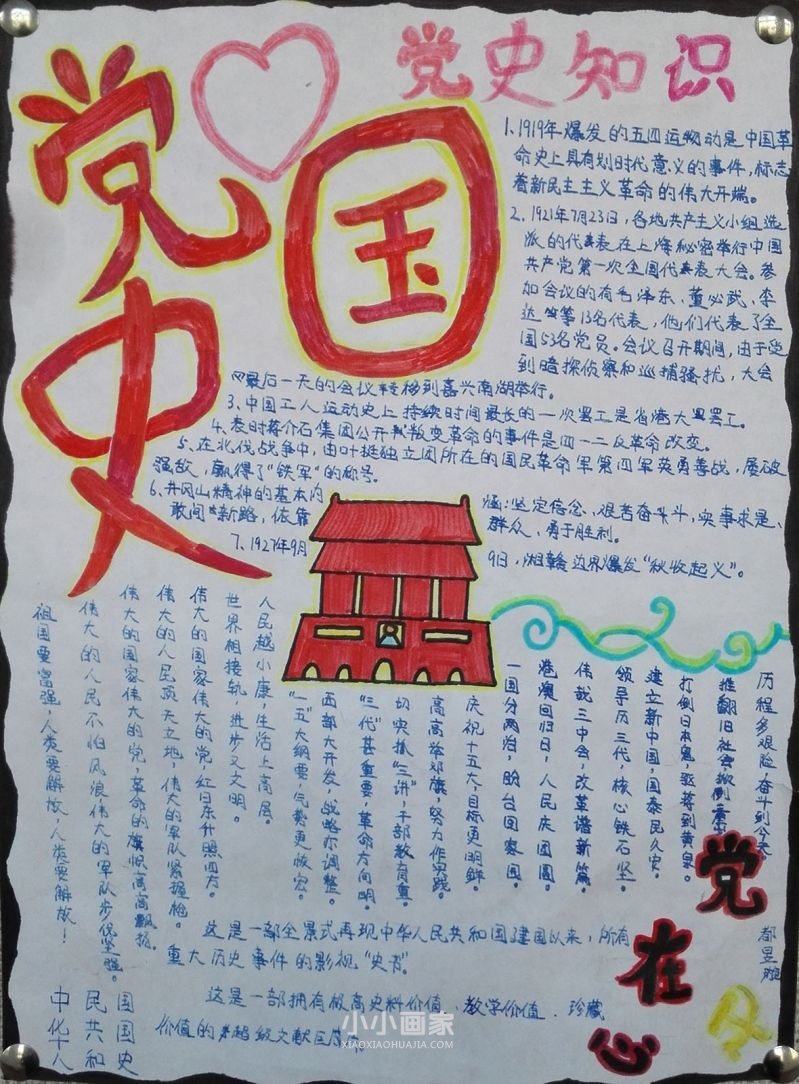 党史
国
党史知识
1、1919年爆发的五四运动是中国革
命史上具有划时代意义的事件，标志
着新民主主义革命的伟大开端。
2、1921年7月23日，各地共产主义小组选
派的代表在上海秘密举行中国
共产党第一次全国代表大会。参
加会议的有毛泽东、董必武、李
达等13名代表，他们代表了全
国53名党员。会议召开期间，由于受
到暗探侦察和巡捕骚扰，大会
最后一天的会议转移到嘉兴南湖举行。
3、中国工人运动史上持续时间最长的一次罢工是省港大罢工。
4、表时蒋介石集团公开叛变革命的事件是四一二反革命改变。
5、在北伐战争中，由叶挺独立团所在的国民革命军第四军英勇善战，屡破
强敌，赢得了“铁军”的称号。
6、井冈山精神的基本内涵：坚定信念、艰苦奋斗，实事求是、
敢闯新路，依靠群众、勇于胜利。
7、1927年9月9日，湘赣边界爆发“秋收起义”。
历程多艰险，奋斗到今天
推翻旧社会，掀倒
打倒日本鬼，致蒋到黄泉。
建立新中国，国泰民久安。
领导历三代，核心铁石坚。
伟哉三中会，改革谱新篇。
港澳回归日，人民庆团圆。
一国分两治，盼台回家园。
庆祝十五大，目标更明鲜。
高高举邓旗，努力作实践。
切实抓“三讲”，干部教育重。
“三代”甚重要，革命方向明。
西部大开发，战略亦调整。
“一五”大纲要，气势更恢宏。
人民越小康，生活上高层。
世界相接轨，进步又文明。
伟大的国家伟大的党，红日东升照四方。
伟大的人民顶天立地，伟大的军队紧握枪。
伟大的国家伟大的党，革命的旗帜高高飘扬。
伟大的人民不怕风浪，伟大的军队步伐坚强。
祖国要富强，人类要解放，人类要解放！
这是一部全景式再现中华人民共和国建国以来，所有
重大历史事件的影视“史书”。
这是一部拥有极高史料价值、教学价值、珍藏
价值的超级文献
中华人
民共和
国国史
党在心
小小画家
XIAOXIAOHUAJIA.COM